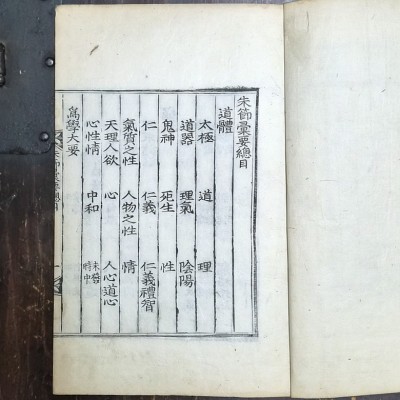 朱節彙要總目
道體
太極 道 理
道器 理氣 陰陽
鬼神 死生 性
仁 仁義 仁義禮智
氣質之性 人物之性 情
天理人欲 心 人心道心
心性情 中和 未發 時中
爲學大要